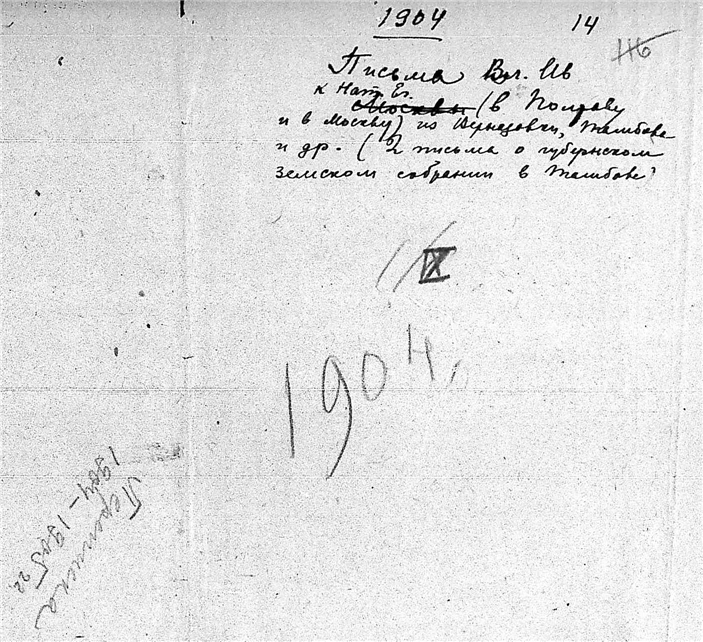 1904 14
116
Письма Вл. Ив
к Нат. Ег.
Москвы (в Полтаву
и в Москву) из Вернадовки, Тамбова
и др. (2 письма о губернском
земском собрании в Тамбове)
IX
1904.
Переписка
1904–1905 гг.